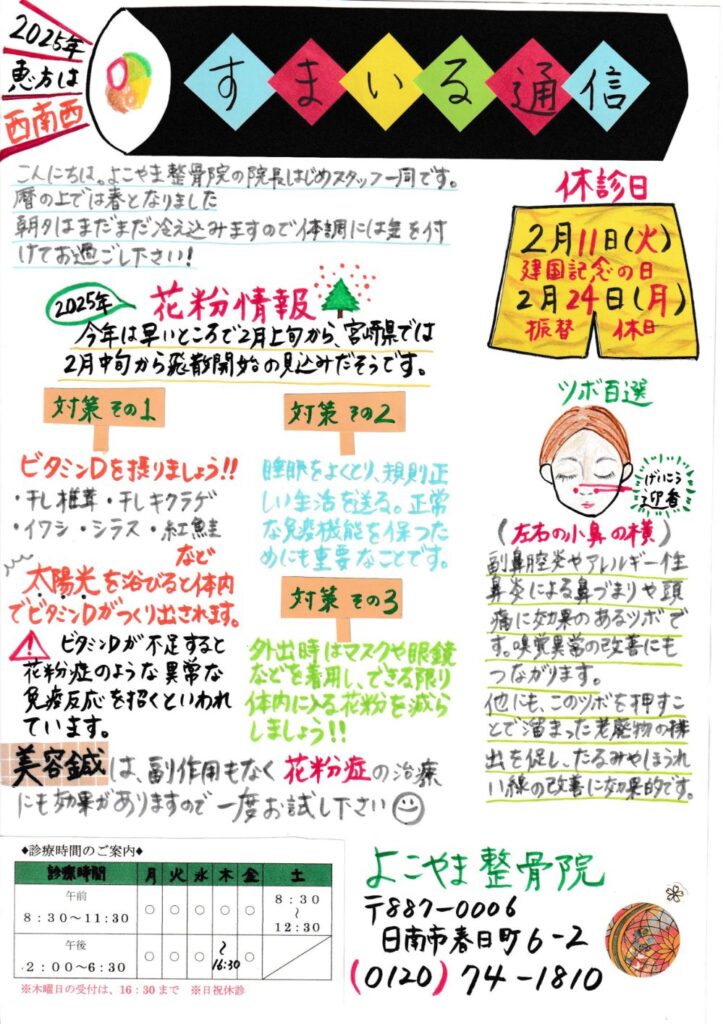 2025年
恵方は
西南西
すまいる通信
こんにちは。よこやま整骨院の院長はじめスタッフ一同です。
暦の上では春となりました
朝夕はまだまだ冷え込みますので体調には気を付
けてお過ごし下さい!
休診日
2月11日(火)
建国記念の日
2月24日(月)
振替 休日
2025年 花粉情報
今年は早いところで2月上旬から、宮崎県では
2月中旬から飛散開始の見込みだそうです。
対策 その1
ビタミンDを摂りましょう!!
・干し椎茸・干しキクラゲ
・イワシ・シラス・紅鮭
など
太陽光を浴びると体内
でビタミンDがつくり出されます。
ビタミンDが不足すると
花粉症のような異常な
免疫反応を招くといわれ
ています。
対策 その2
睡眠をよくとり、規則正
しい生活を送る。正常
な免疫機能を保つた
めにも重要なことです。
対策 その3
外出時はマスクや眼鏡
などを着用し、できる限り
体内に入る花粉を減ら
しましょう!!
ツボ百選
げいこう
迎香
(左右の小鼻の横)
副鼻腔炎やアレルギー性
鼻炎による鼻づまりや頭
痛に効果のあるツボで
す。嗅覚異常の改善にも
つながります。
他にも、このツボを押すこ
とで溜まった老廃物の排
出を促し、たるみやほうれ
い線の改善に効果的です。
美容鍼は、副作用もなく花粉症の治療
にも効果がありますので一度お試し下さい
◆診療時間のご案内◆
診療時間 月 火 水 木 金 土
午前
8:30~11:30 ○ ○ ○ ○ ○ 8:30
~
12:30
午後
2:00~6:30 ○ ○ ○ ~16:30 ○
※木曜日の受付は、16:30まで ※日祝休診
よこやま整骨院
〒887-0006
日南市春日町6-2
(0120)74-1810